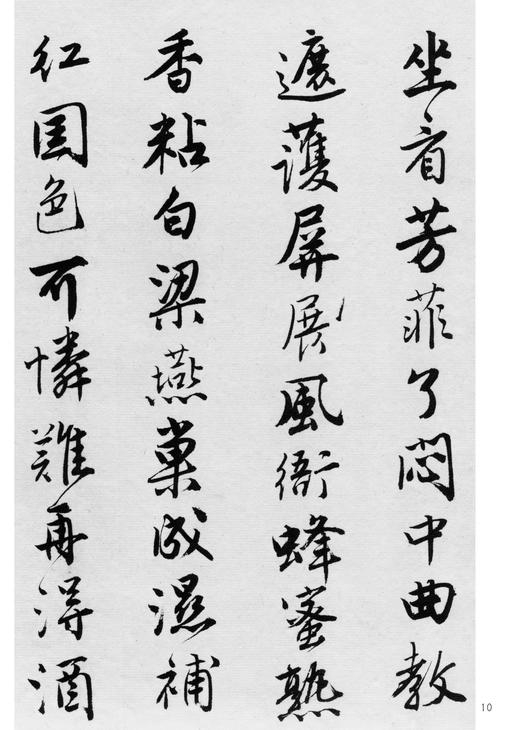 坐看芳菲了悶中曲教
遮護屏展風衙蜂蜜熟
香粘白梁燕巢成濕補
紅国色可憐難再得酒
10